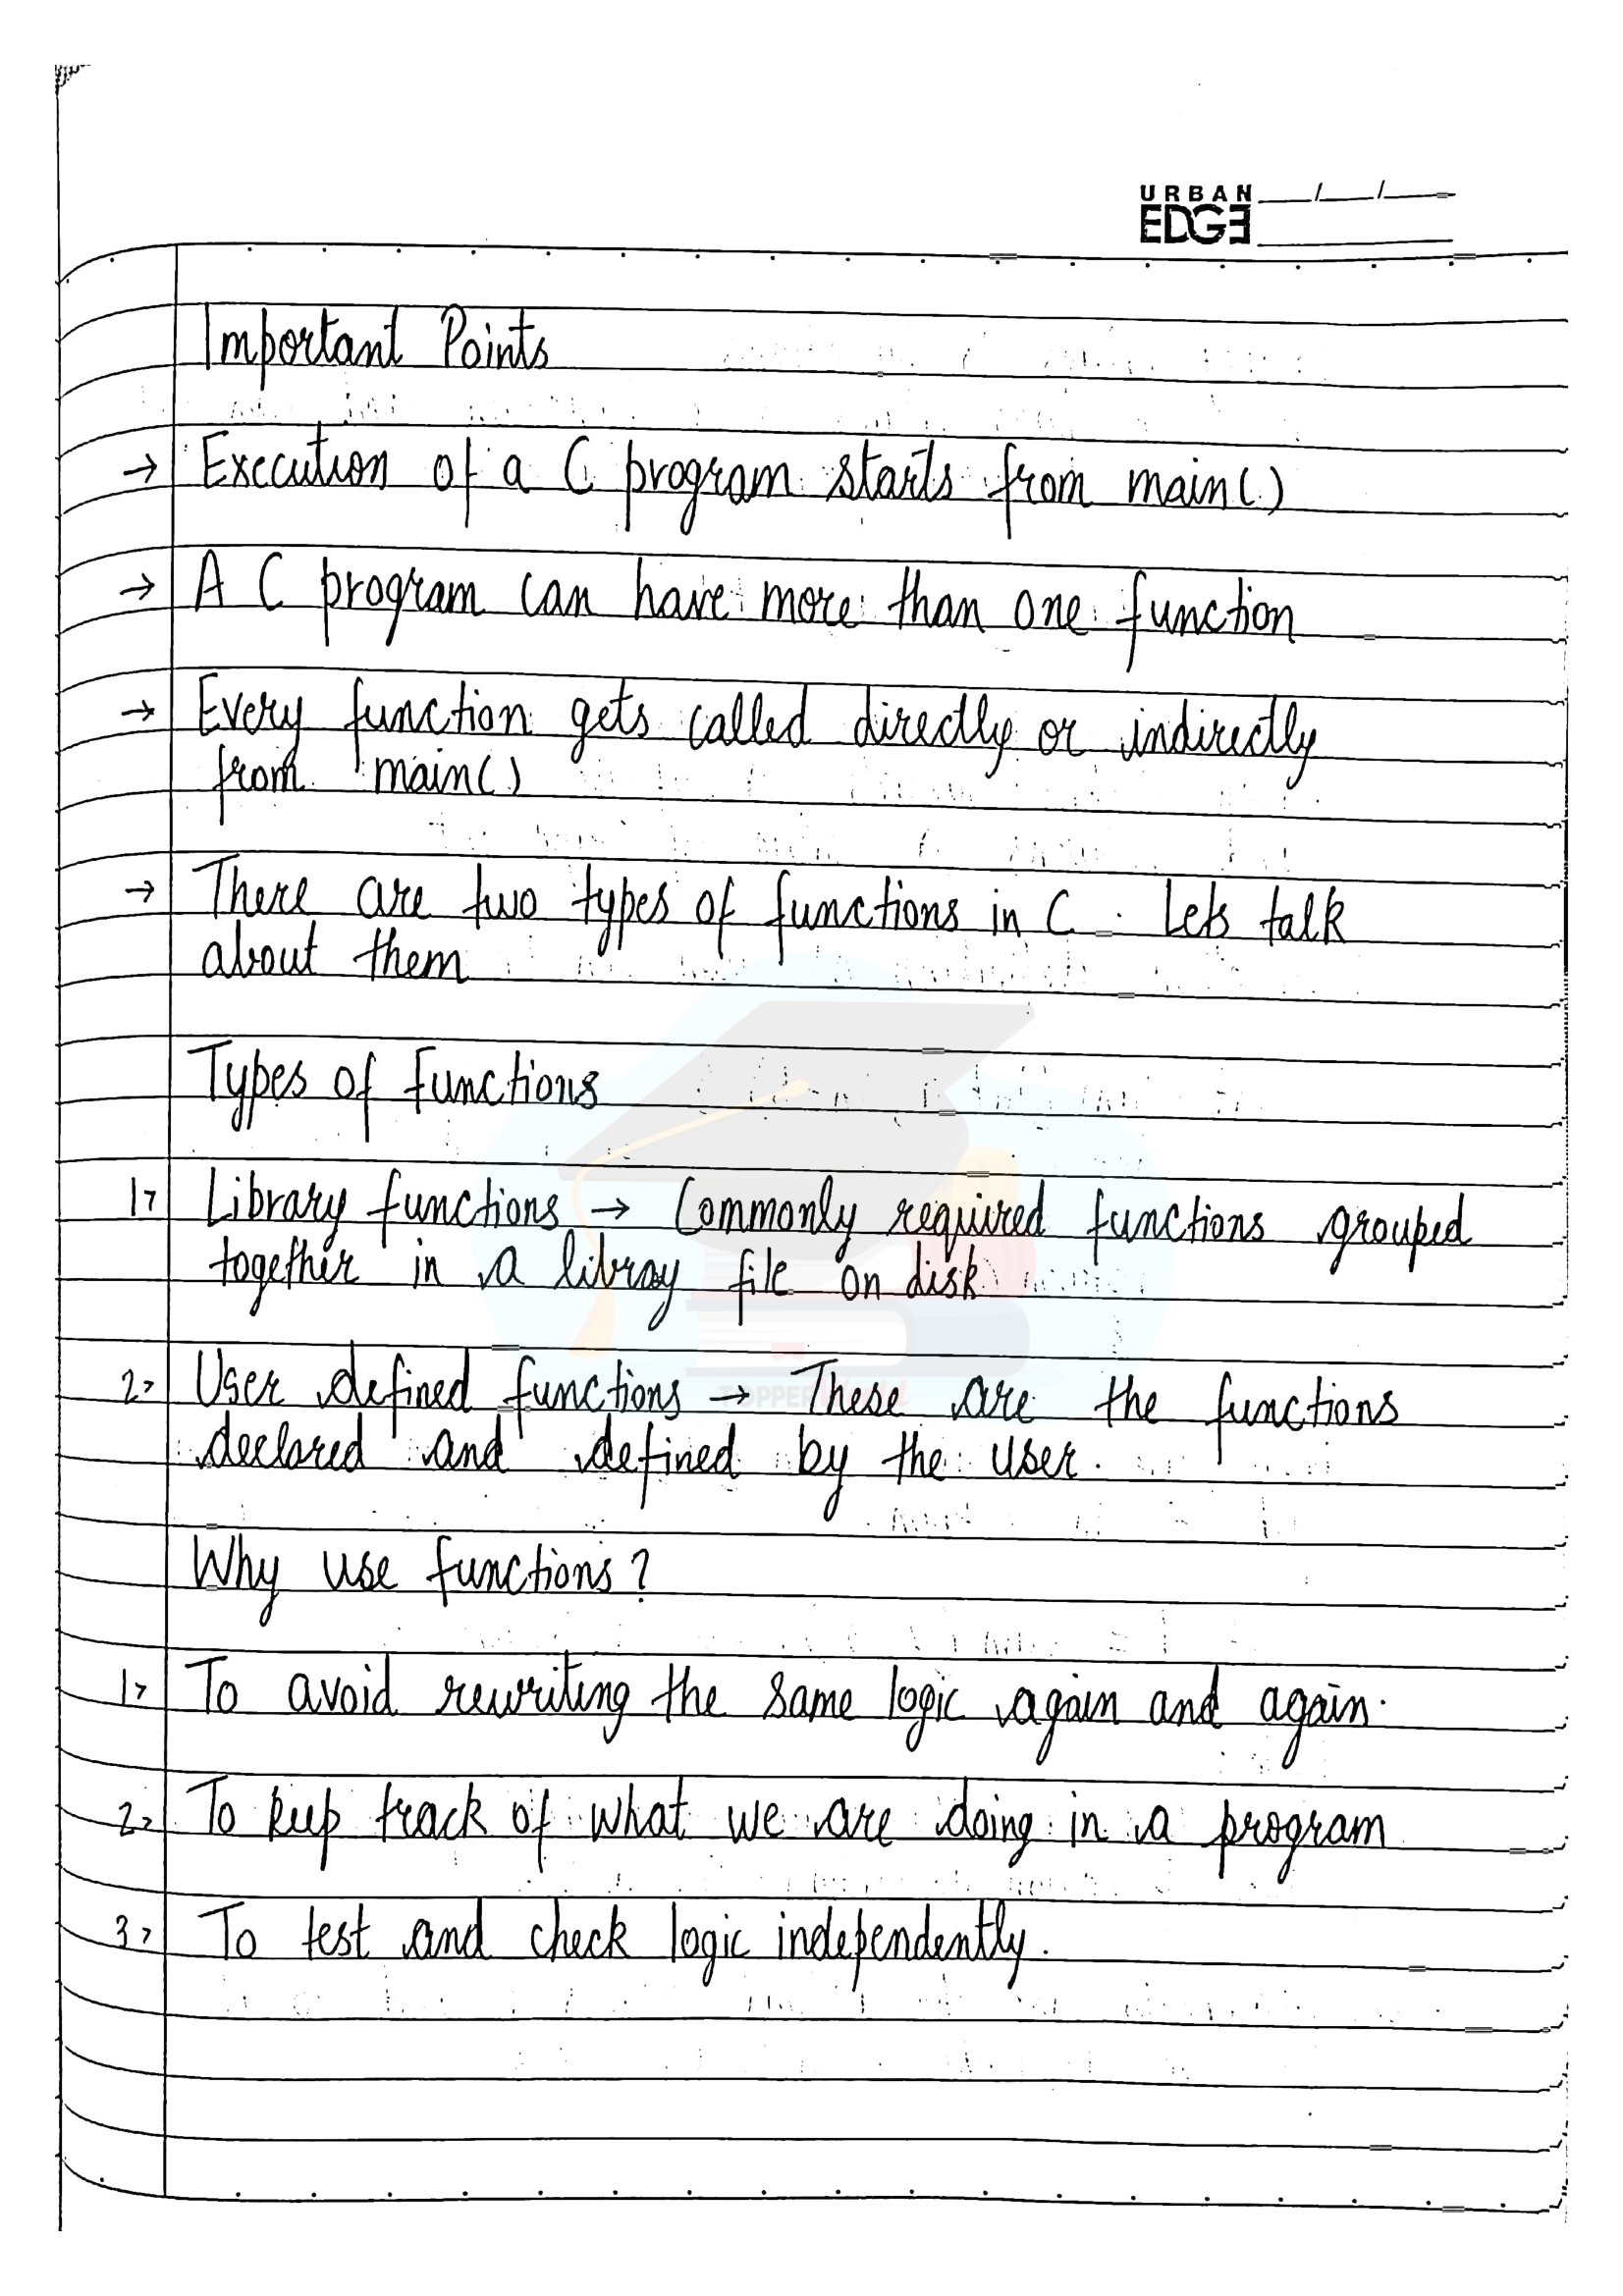 URBAN
EDGE
Important Points
→ Execution of a C program starts from main()
→ A C program can have more than one function
→ Every function gets called directly or indirectly
from main()
→ There are two types of functions in C. Lets talk
about them
Types of functions
1> Library functions → Commonly required functions grouped
together in a libray file on disk
2> User defined functions → These are the functions
declared and defined by the user.
TOPPER World
Why use functions?
1> To avoid rewriting the same logic again and again.
2> To keep track of what we are doing in a program
3> To test and check logic independently.